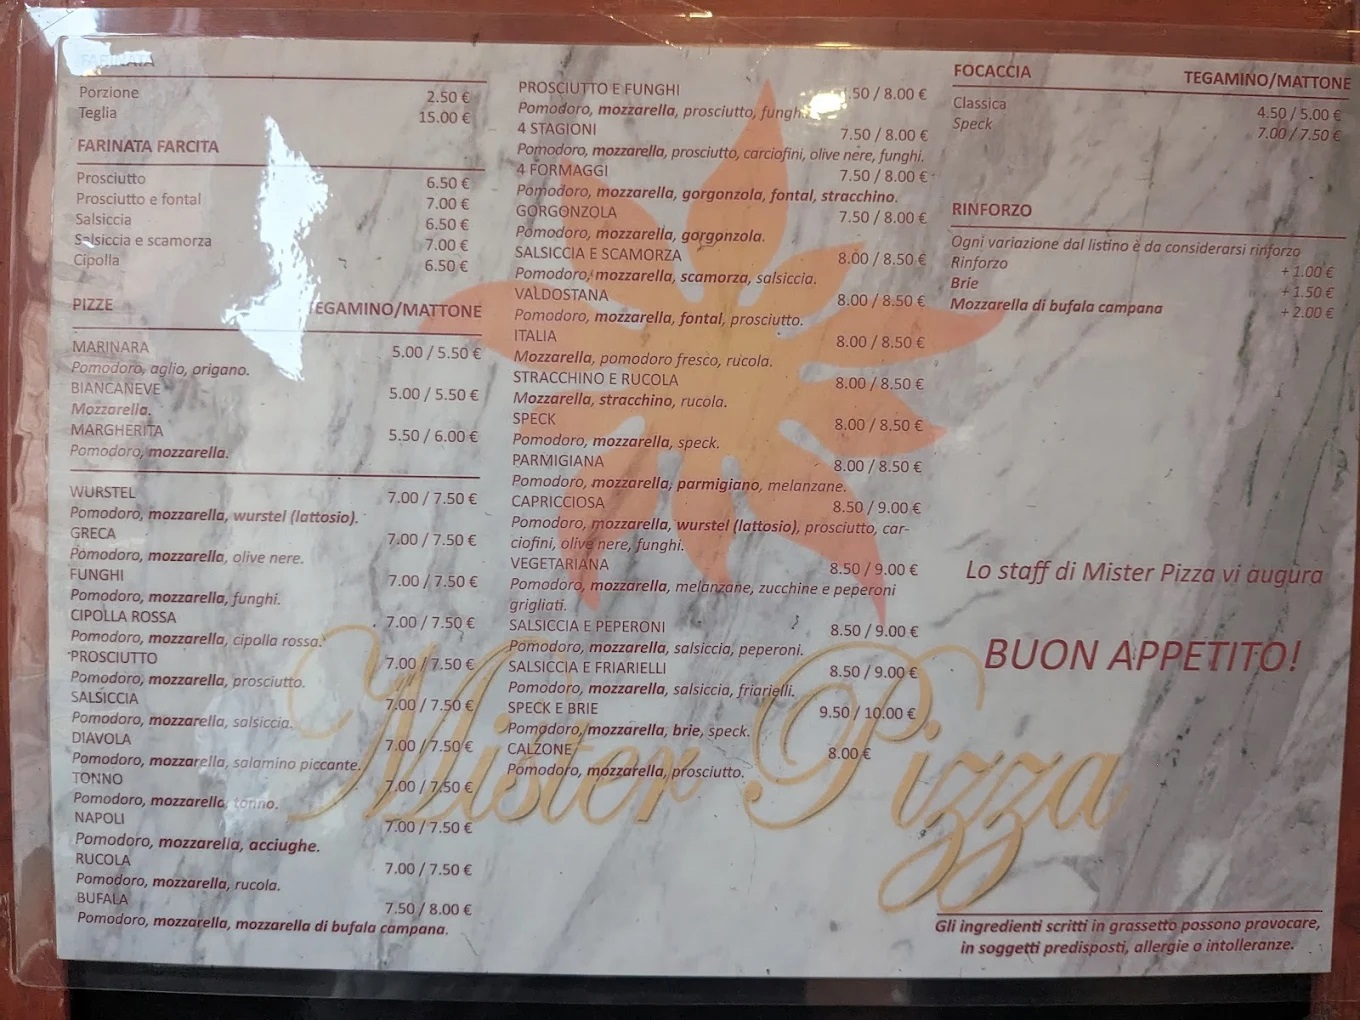 FARINATA
Porzione 2.50 €
Teglia 15.00 €
FARINATA FARCITA
Prosciutto 6.50 €
Prosciutto e fontal 7.00 €
Salsiccia 6.50 €
Salsiccia e scamorza 7.00 €
Cipolla 6.50 €
PIZZE TEGAMINO/MATTONE
MARINARA 5.00 / 5.50 €
Pomodoro, aglio, origano.
BIANCANEVE 5.00 / 5.50 €
Mozzarella.
MARGHERITA 5.50 / 6.00 €
Pomodoro, mozzarella.
WURSTEL 7.00 / 7.50 €
Pomodoro, mozzarella, wurstel (lattosio).
GRECA 7.00 / 7.50 €
Pomodoro, mozzarella, olive nere.
FUNGHI 7.00 / 7.50 €
Pomodoro, mozzarella, funghi.
CIPOLLA ROSSA 7.00 / 7.50 €
Pomodoro, mozzarella, cipolla rossa.
PROSCIUTTO 7.00 / 7.50 €
Pomodoro, mozzarella, prosciutto.
SALSICCIA 7.00 / 7.50 €
Pomodoro, mozzarella, salsiccia.
DIAVOLA 7.00 / 7.50 €
Pomodoro, mozzarella, salamino piccante.
TONNO 7.00 / 7.50 €
Pomodoro, mozzarella, tonno.
NAPOLI 7.00 / 7.50 €
Pomodoro, mozzarella, acciughe.
RUCOLA 7.00 / 7.50 €
Pomodoro, mozzarella, rucola.
BUFALA 7.50 / 8.00 €
Pomodoro, mozzarella, mozzarella di bufala campana.
PROSCIUTTO E FUNGHI .50 / 8.00 €
Pomodoro, mozzarella, prosciutto, funghi
4 STAGIONI 7.50 / 8.00 €
Pomodoro, mozzarella, prosciutto, carciofini, olive nere, funghi.
4 FORMAGGI 7.50 / 8.00 €
Pomodoro, mozzarella, gorgonzola, fontal, stracchino.
GORGONZOLA 7.50 / 8.00 €
Pomodoro, mozzarella, gorgonzola.
SALSICCIA E SCAMORZA 8.00 / 8.50 €
Pomodoro, mozzarella, scamorza, salsiccia.
VALDOSTANA 8.00 / 8.50 €
Pomodoro, mozzarella, fontal, prosciutto.
ITALIA 8.00 / 8.50 €
Mozzarella, pomodoro fresco, rucola.
STRACCHINO E RUCOLA 8.00 / 8.50 €
Mozzarella, stracchino, rucola.
SPECK 8.00 / 8.50 €
Pomodoro, mozzarella, speck.
PARMIGIANA 8.00 / 8.50 €
Pomodoro, mozzarella, parmigiano, melanzane.
CAPRICCIOSA 8.50 / 9.00 €
Pomodoro, mozzarella, wurstel (lattosio), prosciutto, car-
ciofini, olive nere, funghi.
VEGETARIANA 8.50 / 9.00 €
Pomodoro, mozzarella, melanzane, zucchine e peperoni
grigliati.
SALSICCIA E PEPERONI 8.50 / 9.00 €
Pomodoro, mozzarella, salsiccia, peperoni.
SALSICCIA E FRIARIELLI 8.50 / 9.00 €
Pomodoro, mozzarella, salsiccia, friarielli.
SPECK E BRIE 9.50 / 10.00 €
Pomodoro, mozzarella, brie, speck.
CALZONE 8.00 €
Pomodoro, mozzarella, prosciutto.
FOCACCIA TEGAMINO/MATTONE
Classica 4.50 / 5.00 €
Speck 7.00 / 7.50 €
RINFORZO
Ogni variazione dal listino è da considerarsi rinforzo
Rinforzo + 1.00 €
Brie + 1.50 €
Mozzarella di bufala campana + 2.00 €
Lo staff di Mister Pizza vi augura
BUON APPETITO!
Mister Pizza
Gli ingredienti scritti in grassetto possono provocare,
in soggetti predisposti, allergie o intolleranze.